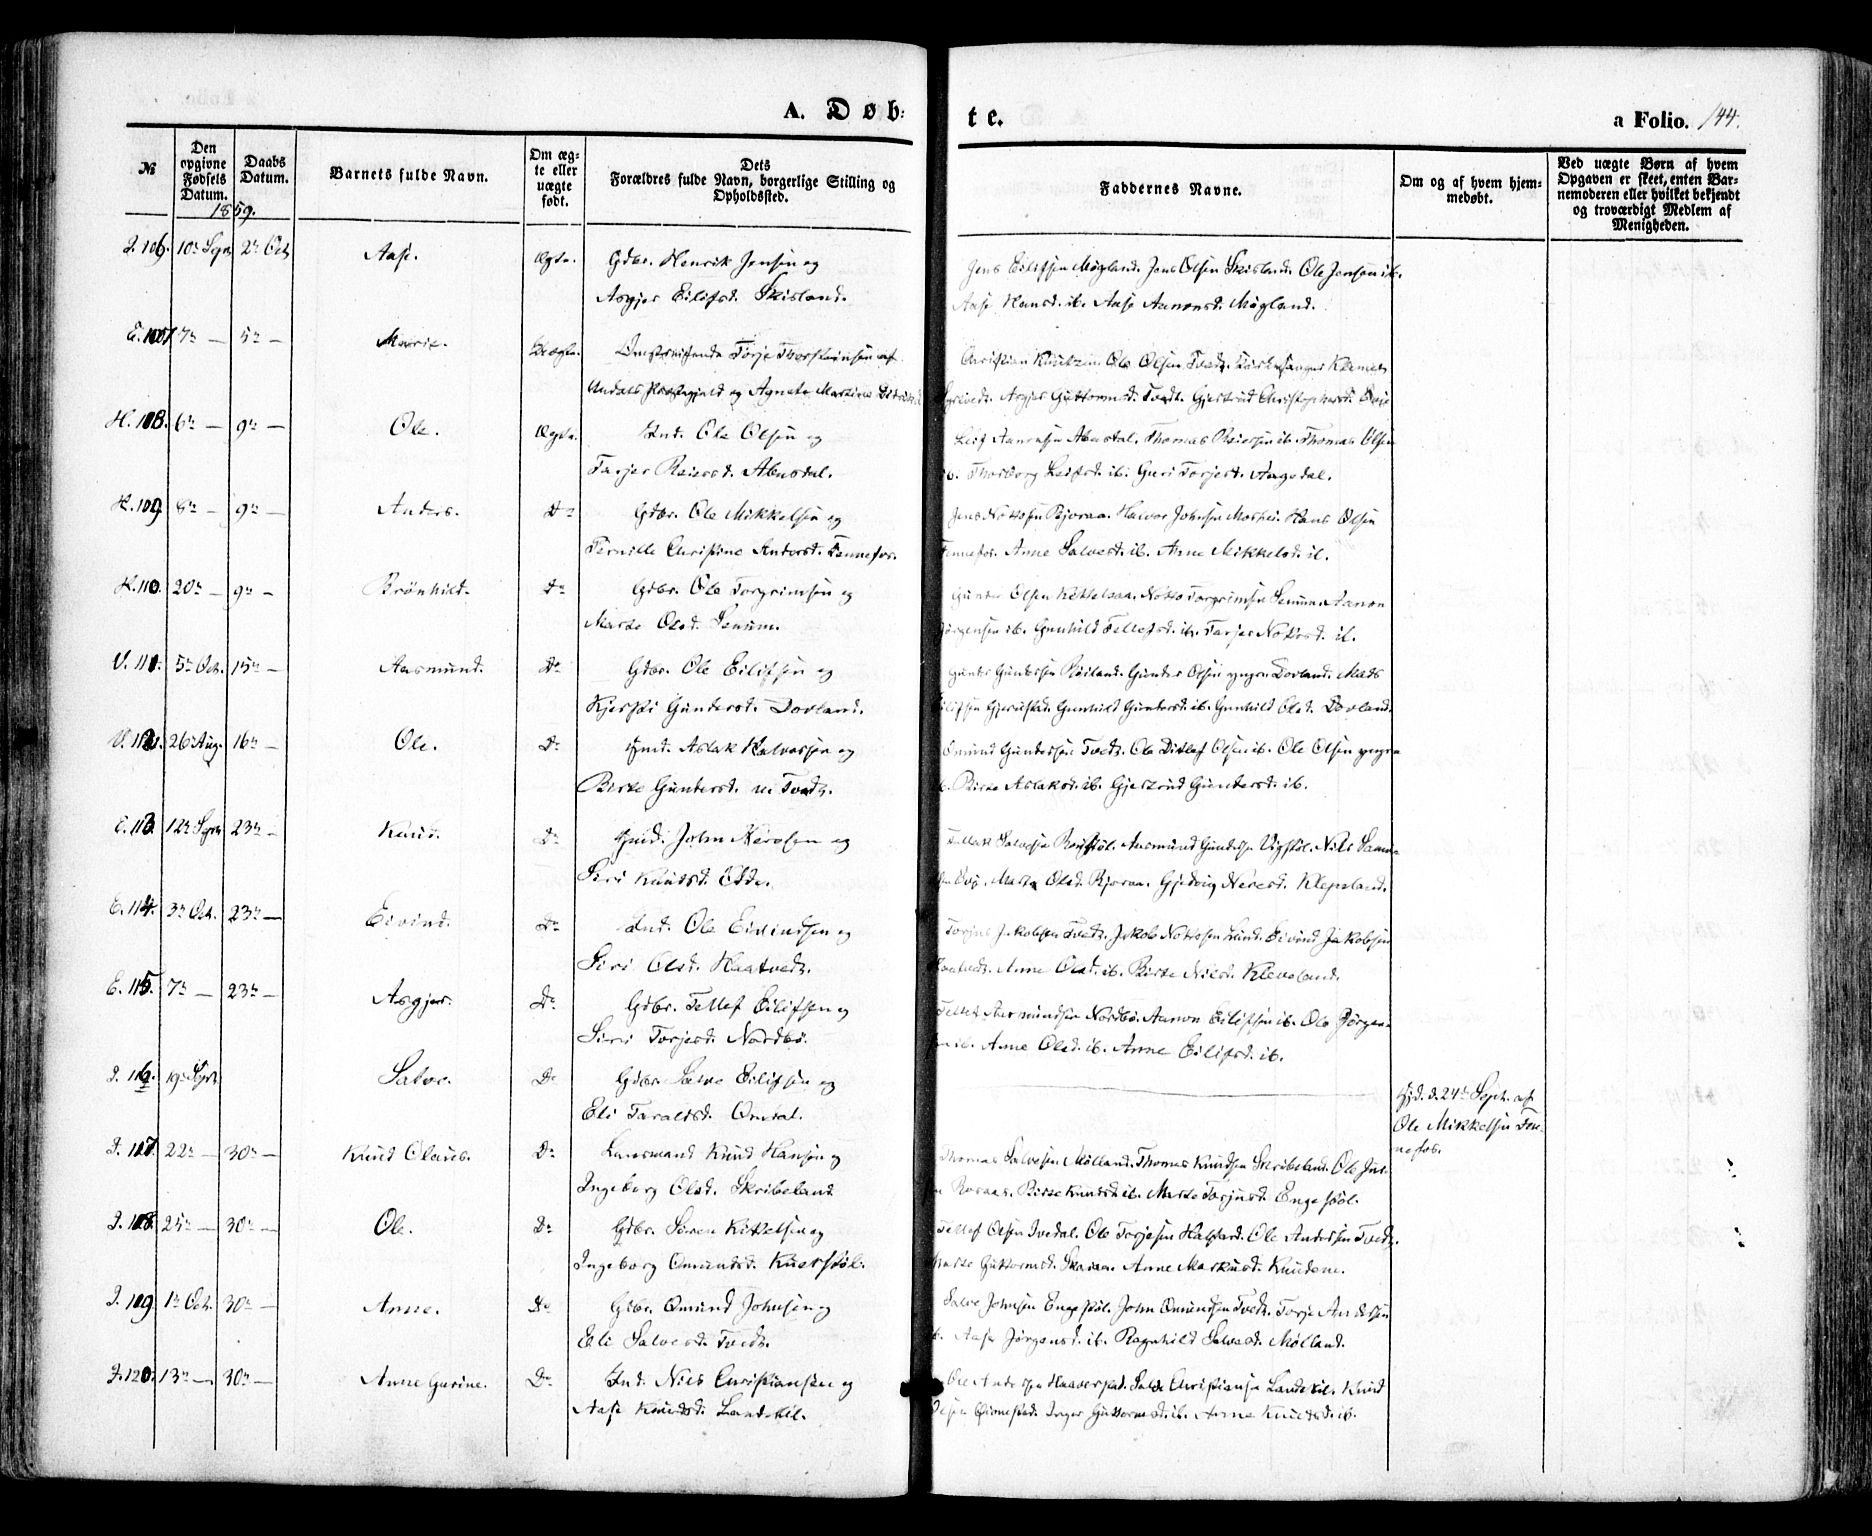 A. Døb:
te.
a Folio. 144.
№
Den opgivne Fødsels Datum.
Daabs Datum.
Barnets fulde Navn.
Om æg-te eller uægte født.
Dets Forældres fulde Navn, borgerlige Stilling og Opholdssted.
Faddernes Navne.
Om og af hvem hjem-medøbt.
Ved uægte Børn af hvem Opgaven er skeet, enten Bar-nemoderen eller hvilket bekjendt og troværdigt Medlem af Menigheden.
1859.
106. 10de 2den Oct. Aase. Ægte. Gdbr. Henrik Jensen og
Asgjer Eilifsd. Skisland.
Jens Eilifsen Møgland. Jens Olsen Skisland. Ole Jensen ib.
Aase Hansd. ib. Aase Aanonsd. Møgland.
E. 107 7de — 5te — Marie. Uægte. Torje Thorsteinsen af
og Agnete Martine
Christian Ole Olsen Tvedt.
Asgjer Guttormsd. Tvedt. Gjertrud Christophersd.
H. 108. 6te — 9de — Ole. Ægte. Ind. Ole Olsen og
Tarjer Reiersd. Abusdal.
Leif Aanensen Abusdal. Thomas Reiersen ib. Thomas Olsen
ib. Thorborg Leifsd. ib. Guri Torjesd. Aagedal.
H. 109 8de — 9de — Anders. Do Gdbr. Ole Mikkelsen og
Pernille Christine Andersd. Fennefos.
Jens Nottosen Bjoraa. Halvor Johnsen Moshei. Hans Olsen
Fennefos. Anne Salvesd. ib. Anne Mikkelsd. ib.
H. 110. 20de — 9de — Brønhild. Do Gdbr. Ole Torgrimsen og
Marte Olsd. Senum.
Gunder Olsen Kittelsaa. Notto Torgrimsen Senum. Aanon
Jørgensen ib. Gunhild Tellefsd. ib. Tarjer Nottosd. ib.
V. 111. 5te Oct. 15de — Aasmund. Do Gdbr. Ole Eilifsen og
Kjersti Gundersd. Dovland.
Gunder Gundersen Røiland. Gunder Olsen yngre Dovland. Mads
Eilifsen Gjerustad. Gunhild Gundersd. ib. Gunhild Olsd. Dovland.
V. 112. 26de Aug. 16de — Ole. Do Ind. Aslak Halvorsen og
Birte Gundersd. Tvedt.
Omund Gundersen Tvedt. Ole Ditlef Olsen ib. Ole Olsen yngre
ib. Birte Aslaksd. ib. Gjertrud Gundersd. ib.
E. 113. 12te 23de — Knud. Do Ind. John Nerisen og
Siri Knudsd.
Tellef Salvesen Aasmund Gundersen Vigstøl. Nils
Marte Olsd. Bjoraa. Gjedvig Nerisd. Klepsland.
E. 114. 3de Oct. 23de — Eivind. Do Ind. Ole Eivindsen og
Siri Olsd. Haatvedt.
Torjus Jakobsen Tvedt. Jakob Nottosen Lund. Eivind Jakobsen
Haatvedt. Anne Olsd. ib. Birte Nilsd. Kleveland.
E. 115. 7de — 23de — Asgjer. Do Gdbr. Tellef Eilifsen og
Siri Torjesd. Nordbø.
Tellef Aasmundsen Nordbø. Aanon Eilifsen ib. Ole Jørgen-
sen ib. Anne Olsd. ib. Anne Eilifsd. ib.
116. 19de Sept. Salve. Do Gdbr. Salve Eilifsen og
Eli Taraldsd. Omdal.
Hjd. d. 24de Sept. af
Ole Mikkelsen Fen-
nefos.
117. 22de — 30de — Knud Olaus. Do Lensmand Knud Hansen og
Ingeborg Olsd. Skribeland
Thomas Salvesen Mølland. Thomas Knudsen Skribeland. Ole
Birte Knudsd. ib. Marte Torjusd. Engestøl.
118. 25de — 30de — Ole. Do Gdbr. Søren Kittelsen og
Ingeborg Omundsd. Kuerstøl.
Tellef Olsen Ivedal. Ole Torjesen Ole Andersen Tvedt.
Marte Guttormsd. Anne Markusd. Knudene.
119 1ste Oct. 30de — Anne. Do Gdbr. Omund Johnsen og
Eli Salvesd. Tvedt.
Salve Johnsen Engestøl. John Omundsen Tvedt. Torje Andersen
ib. Aase Jørgensd. ib. Ragnhild Salvesd. Mølland.
120. 13de — 30de — Anne Gurine. Do Ind. Niels Christiansen og
Aase Knudsd. Landskil.
Ole Andersen Haaverstad. Salve Christiansen Landskil. Knud
Inger Guttormsd. ib. Anne Knudsd. ib.